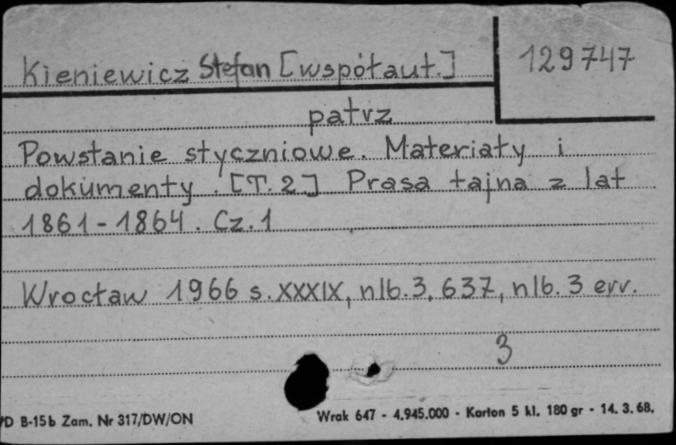 Kieniewicz Stefan [współaut.]
129747
patrz
Powstanie styczniowe. Materiały i
dokumenty. [T. 2] Prasa tajna z lat
1861-1864. Cz. 1
Wrocław 1966 s. XXXIX, nlb. 3, 637, nlb. 3 err.
3
PD B-15b Zam. Nr 317/DW/ON
Wrak 647 - 4.945.000 - Karton 5 kl. 180 gr - 14. 3. 68.